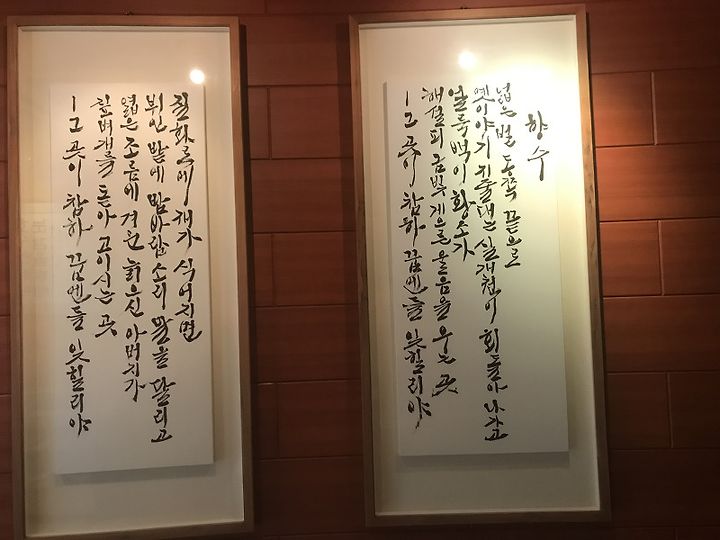 향수
넓은 벌 동쪽 끝으로
옛이야기 지줄대는 실개천이 회돌아 나가고
얼룩백이 황소가
해설피 금빛 게으른 울음을 우는 곳
ㅣ그 곳이 참하 꿈엔들 잊힐리야
질화로에 재가 식어지면
뷔인 밭에 밤바람 소리 말을 달리고
엷은 조름에 겨운 늙으신 아버지가
짚벼개를 돋아 고이시는 곳
ㅣ그 곳이 참하 꿈엔들 잊힐리야